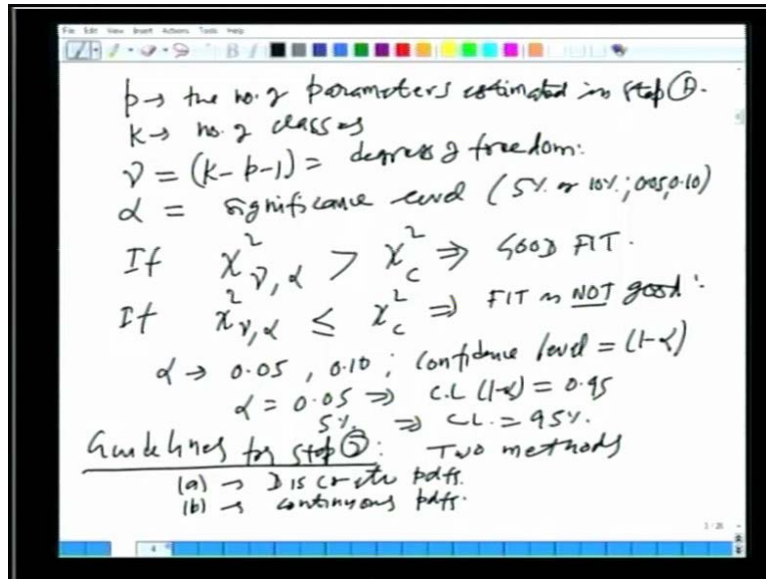 File Edit View Insert Actions Tools Help
p → the no. of parameters estimated in step ①.
K → no. of classes
ν = (K-p-1) = degrees of freedom:
α = significance level (5% or 10%; 0.05, 0.10)
If χ²ν,α > χ²c ⇒ GOOD FIT.
If χ²ν,α ≤ χ²c ⇒ FIT is NOT good:
α → 0.05, 0.10; confidence level = (1-α)
α = 0.05 ⇒ C.L (1-α) = 0.95
5% ⇒ CL. = 95%.
Guidelines for step ②: Two methods
(a) → Discrete pdfs.
(b) → continuous pdfs.